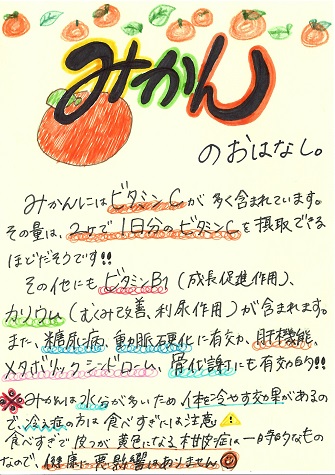 みかん
のおはなし。
みかんにはビタミンCが多く含まれています。
その量は、2ヶで1日分のビタミンCを摂取できる
ほどだそうです!!
その他にもビタミンB1(成長促進作用)、
カリウム(むくみ改善、利尿作用)が含まれます。
また、糖尿病、動脈硬化に有効か、肝機能、
メタボリックシンドローム、骨代謝にも有効的!!
※みかんは水分が多いため、体を冷やす効果があるの
で、冷え症の方は食べすぎには注意
食べすぎで皮フが黄色になる柑皮症は一時的なもの
なので、健康に悪影響はありません